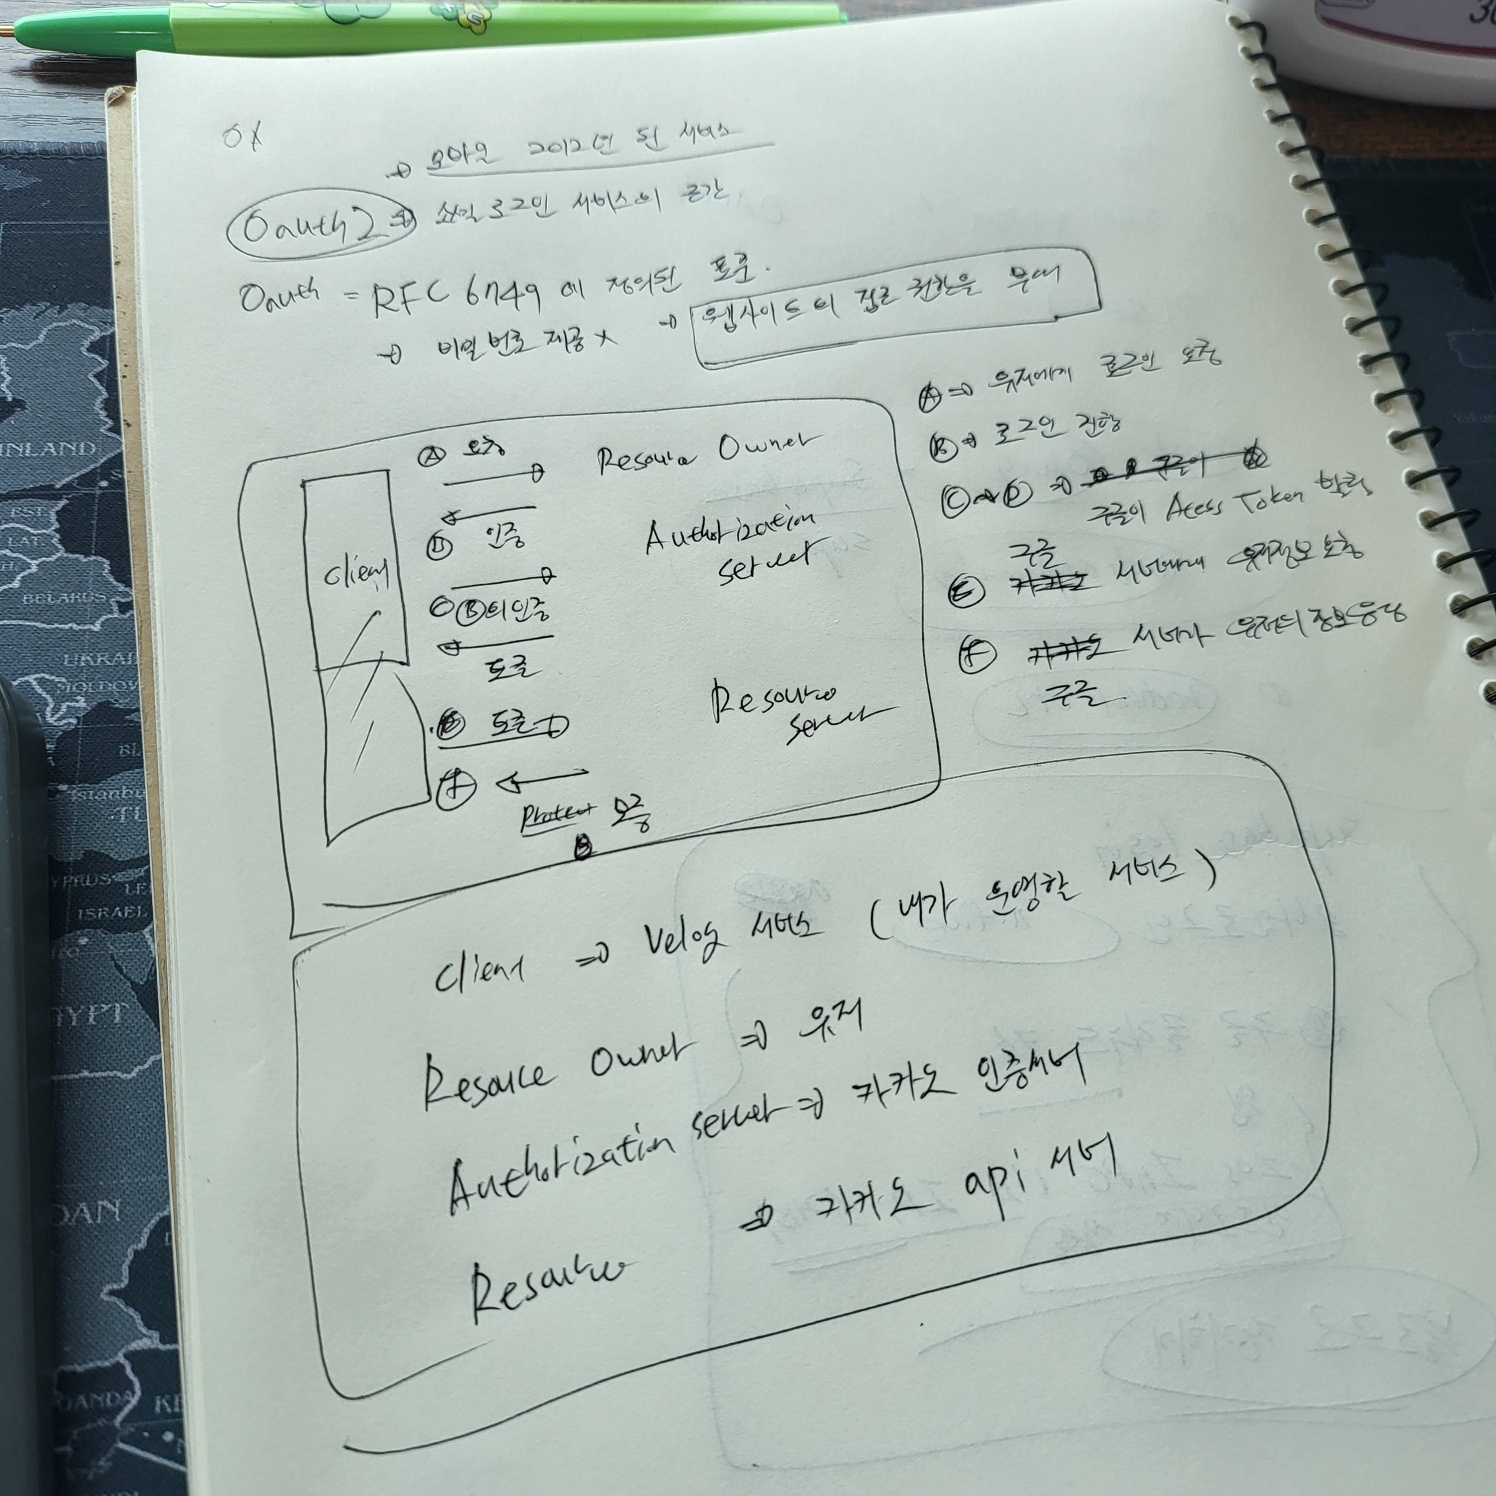 OX
→ 2012년 된 서비스
Oauth2 → 소셜 로그인 서비스의 근간.
Oauth = RFC 6749 에 정의된 표준.
→ 비밀번호 제공 X → 웹사이드의 접근 권한을 부여
Ⓐ 요청
Resource Owner
인증
Authorization
server
client
C Ⓑ의 인증
토큰
Resource
server
Ⓔ 토큰 →
Ⓕ ←
Protect
Ⓐ ⇒ 유저에게 로그인 요청
Ⓑ ⇒ 로그인 진행
Ⓒ→Ⓓ ⇒ 구글이
구글이 Acess Token 발급
구글
Ⓔ 카카오 서버에게 유저정보 요청
Ⓕ 카카오 서버가 유저의 정보 응답
구글
Client ⇒ Velog 서비스 (내가 운영할 서비스)
Resource Owner ⇒ 유저
Authorization server ⇒ 카카오 인증서버
Resource ⇒ 카카오 api 서버
INLAND
EST
LAT
BELARUS
UKRAI
MOLDOV
Istanbul
CYPRUS
LE
ISRAEL
GYPT
DAN
GANDA
KE